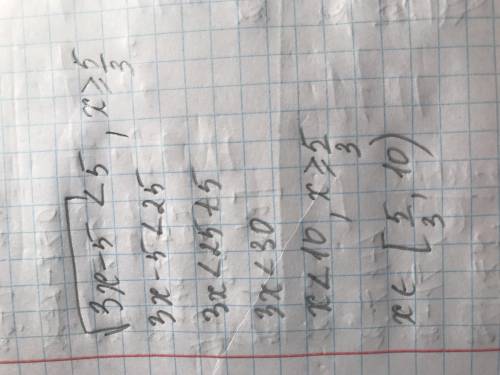 √(3x-5) < 5 , x ≥ 5/3
3x-5 < 25
3x < 25+5
3x < 30
x < 10 , x ≥ 5/3
x ∈ [5/3, 10)